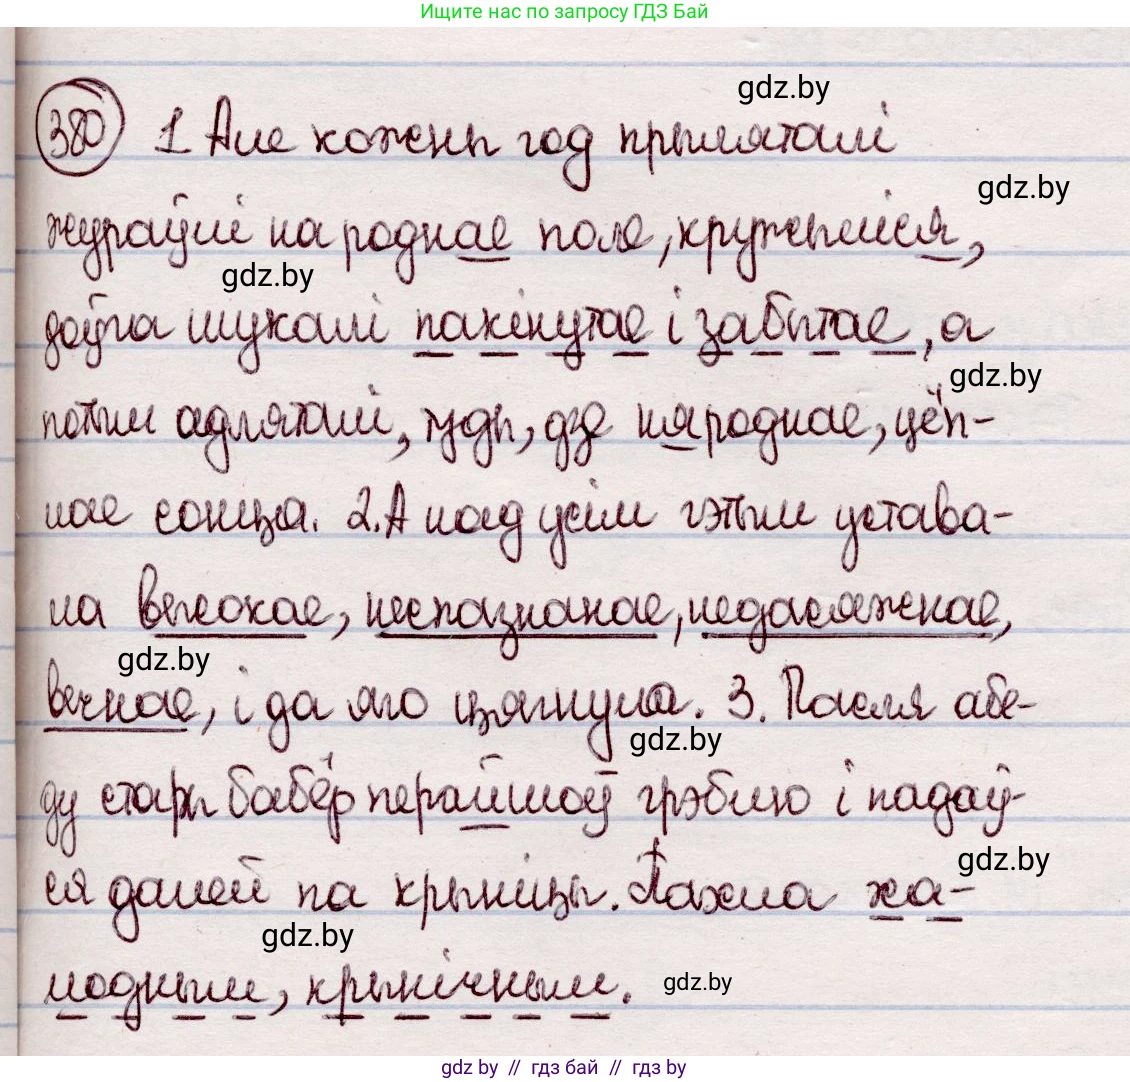 Ищите нас по запросу ГДЗ Бай
gdz.by
380 1 Але кожны год прыляталі
gdz.by
жураўлі на роднае поле, кружыліся,
gdz.by
доўга шукалі пакінутае і забытае, а
gdz.by
потым адляталі, туды, дзе няроднае, цёп-
лае сонца. 2. А над усім гэтым устава-
ла высокае, неспазнанае, недасяжнае,
gdz.by
вечнае, і да яго цягнула. 3. Пасля абе-
gdz.by
ду стары бабёр перайшоў грэблю і падаў-
gdz.by
ся далей па крыніцы. Пахла ха-
gdz.by
лодным, крынічным.
gdz.by
gdz.by // гдз бай // гдз by